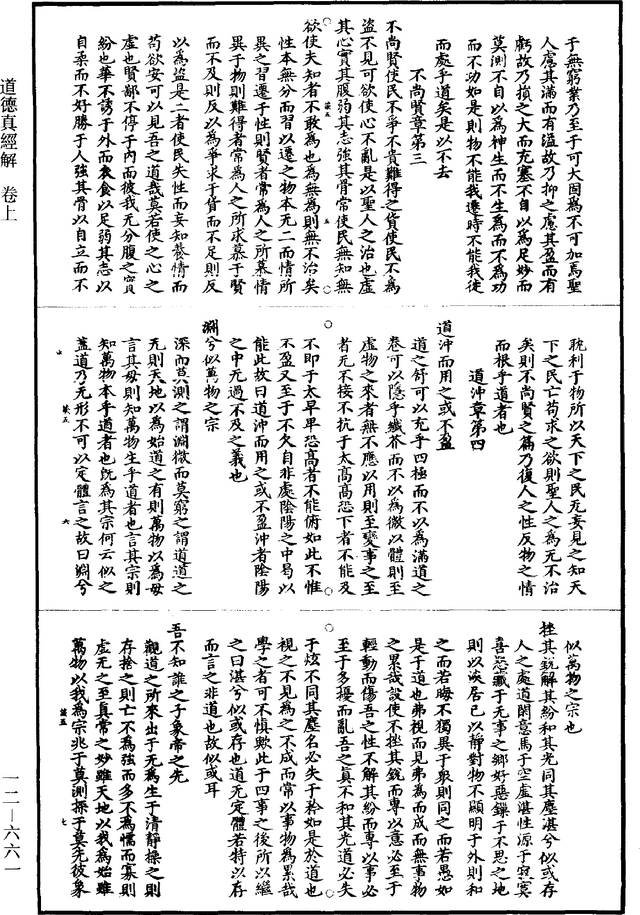 道德真經解 卷上
于無窮業乃至于可大固爲不可加焉聖
人慮其滿而有溢故乃抑之慮其盈而有
虧故乃損之大而充塞不自以爲足妙而
莫測不自以爲神生而不生爲而不爲功
而不功如是則物不能我遷時不能我徙
而處乎道矣是以不去
不尚賢章第三
不尚賢使民不爭不貴難得之貨使民不爲
盜不見可欲使心不亂是以聖人之治也虛
其心實其腹弱其志強其骨常使民無知無
欲使夫知者不敢爲也爲無爲則無不治矣
性本無分而習以遷之物本无二而情所
異之習遷于性則賢者常爲人之所慕情
異于物則難得者常爲人之所求慕于賢
而不及則反以爲爭求于貨而不足則反
以爲盜是二者使民失性而妄知養情而
苟欲安可以見吾之道哉莫若使之心之
虛也賢鄙不停于內而彼我无分腹之實
紛也華不誘于外而食以足弱其志以
自柔而不好勝于人強其骨以自立而不
耽利于物所以天下之民无妄見之知天
下之民亡苟求之欲則聖人之爲无不治
矣則不尚賢之篇乃復人之性反物之情
而根乎道者也
道沖章第四
道沖而用之或不盈
道之舒可以充乎四極而不以爲滿道之
卷可以隱乎纖芥而不以爲微以體則至
虛物之來者無不應以用則至變事之至
者无不接不抗于太高高恐下者不能及
不即于太卑卑恐高者不能俯如此不惟
不盈又至于不欠自非處陰陽之中曷以
能此故曰道沖而用之或不盈沖者陰陽
之中无過不及之義也
淵兮似萬物之宗
深而莫測之謂淵微而莫窮之謂道道之
无則天地以爲始道之有則萬物以爲母
言其母則知萬物生乎道者也言其宗則
知萬物本乎道者也既爲其宗何云似之
蓋道乃无形不可以定體言之故曰淵兮
似萬物之宗也
挫其銳解其紛和其光同其塵湛兮似或存
人之處道閑意焉于空虛湛性源于寂寞
喜怒藏于无事之鄉好惡鏁于不思之地
則以淡居己以靜對物不顯明于外則和
之而若晦不獨異于衆則同之而若愚如
是于道也弗視而見弗爲而成而無事物
之累哉設使不挫其銳而專以意必至于
輕動而傷吾之性不解其紛而專以事必
至于多擾而亂吾之眞不和其光道必失
于炫不同其塵名必失于矜如是於道也
視之不見爲之不成而常以事物爲累哉
學之者可不慎歟此于四事之後所以繼
之曰湛兮似或存也道无定體若特以存
而言之非道也故似或耳
吾不知誰之子象帝之先
觀道之所來出于无爲生于清靜操之則
存捨之則亡不爲強而多不爲懦而寡則
虛无之至真常之妙雖天地以我爲始雖
萬物以我爲宗兆于莫測操于莫先彼象
一二—六六一